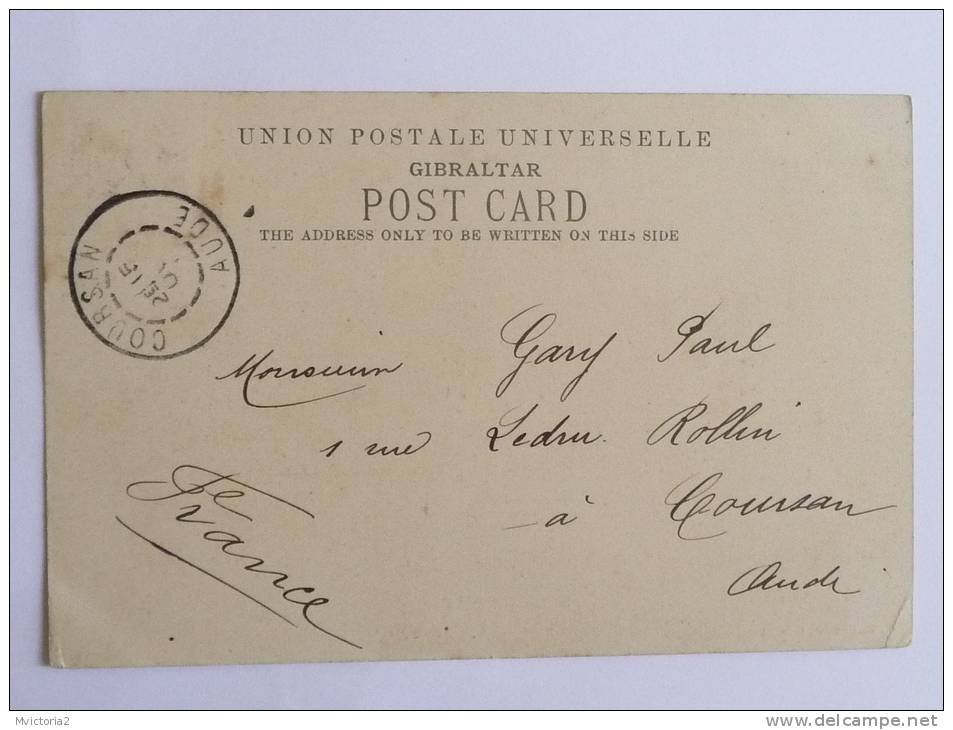 UNION POSTALE UNIVERSELLE
GIBRALTAR
POST CARD
THE ADDRESS ONLY TO BE WRITTEN ON THIS SIDE
COURSAN
AUDE
Monsieur Gary Paul
1 rue Ledru Rollin
à Coursan
Aude
France
Mvictoria2
www.delcampe.net